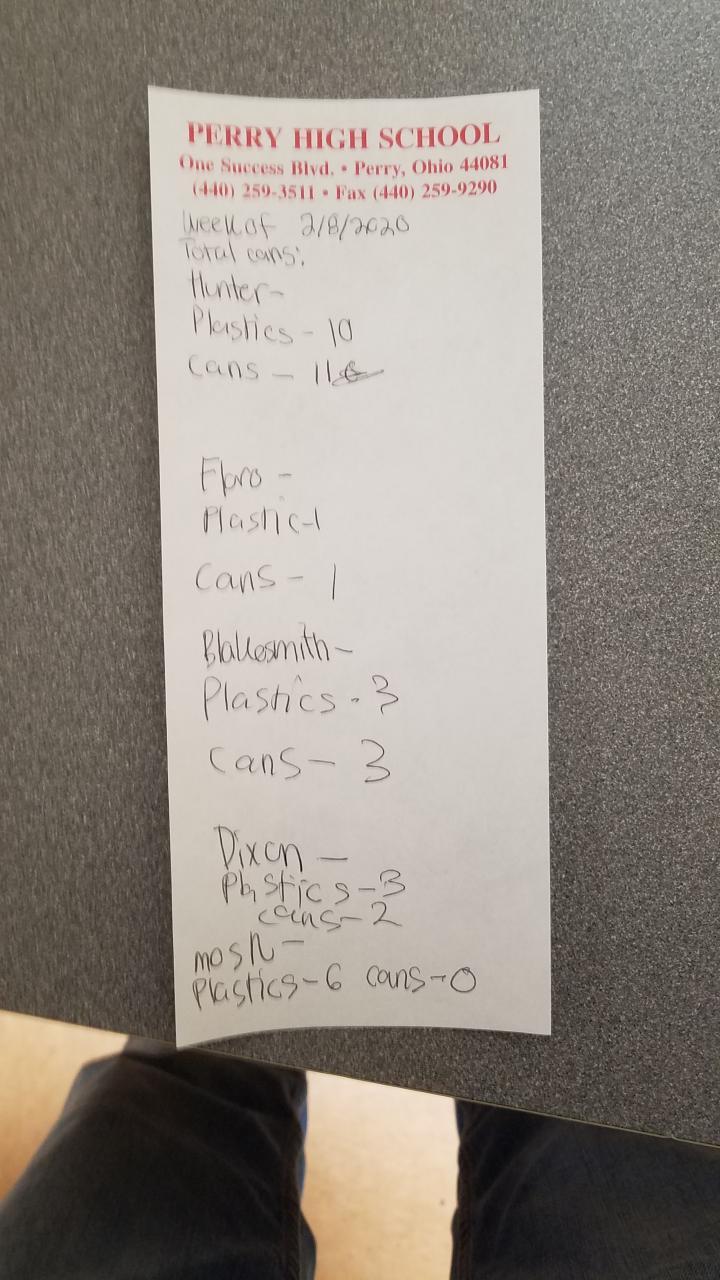 PERRY HIGH SCHOOL
One Success Blvd. • Perry, Ohio 44081
(440) 259-3511 • Fax (440) 259-9290
Week of 2/8/2020
Total cans:
Hunter-
Plastics - 10
Cans - 11
Floro -
Plastic-1
Cans - 1
Blakesmith-
Plastics - 3
Cans - 3
Dixon -
Plastics-3
cans-2
Plastics-6 cans-0